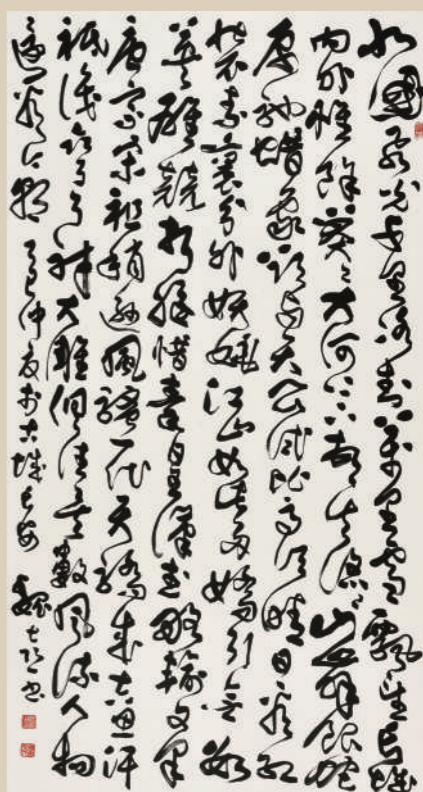 北國風光千里冰封萬里雪飄望長城
内外惟餘莽々大河上下頓失滔々山舞銀蛇
原馳蜡象欲與天公試比高須晴日看紅
裝素裹分外妖嬈江山如此多嬌引無數
英雄競折腰惜秦皇漢武略輸文采
唐宗宋祖稍遜風騷一代天驕成吉思汗
祇識彎弓射大雕俱往矣數風流人物
還看今朝 巳仲夏於古城長安 魏書